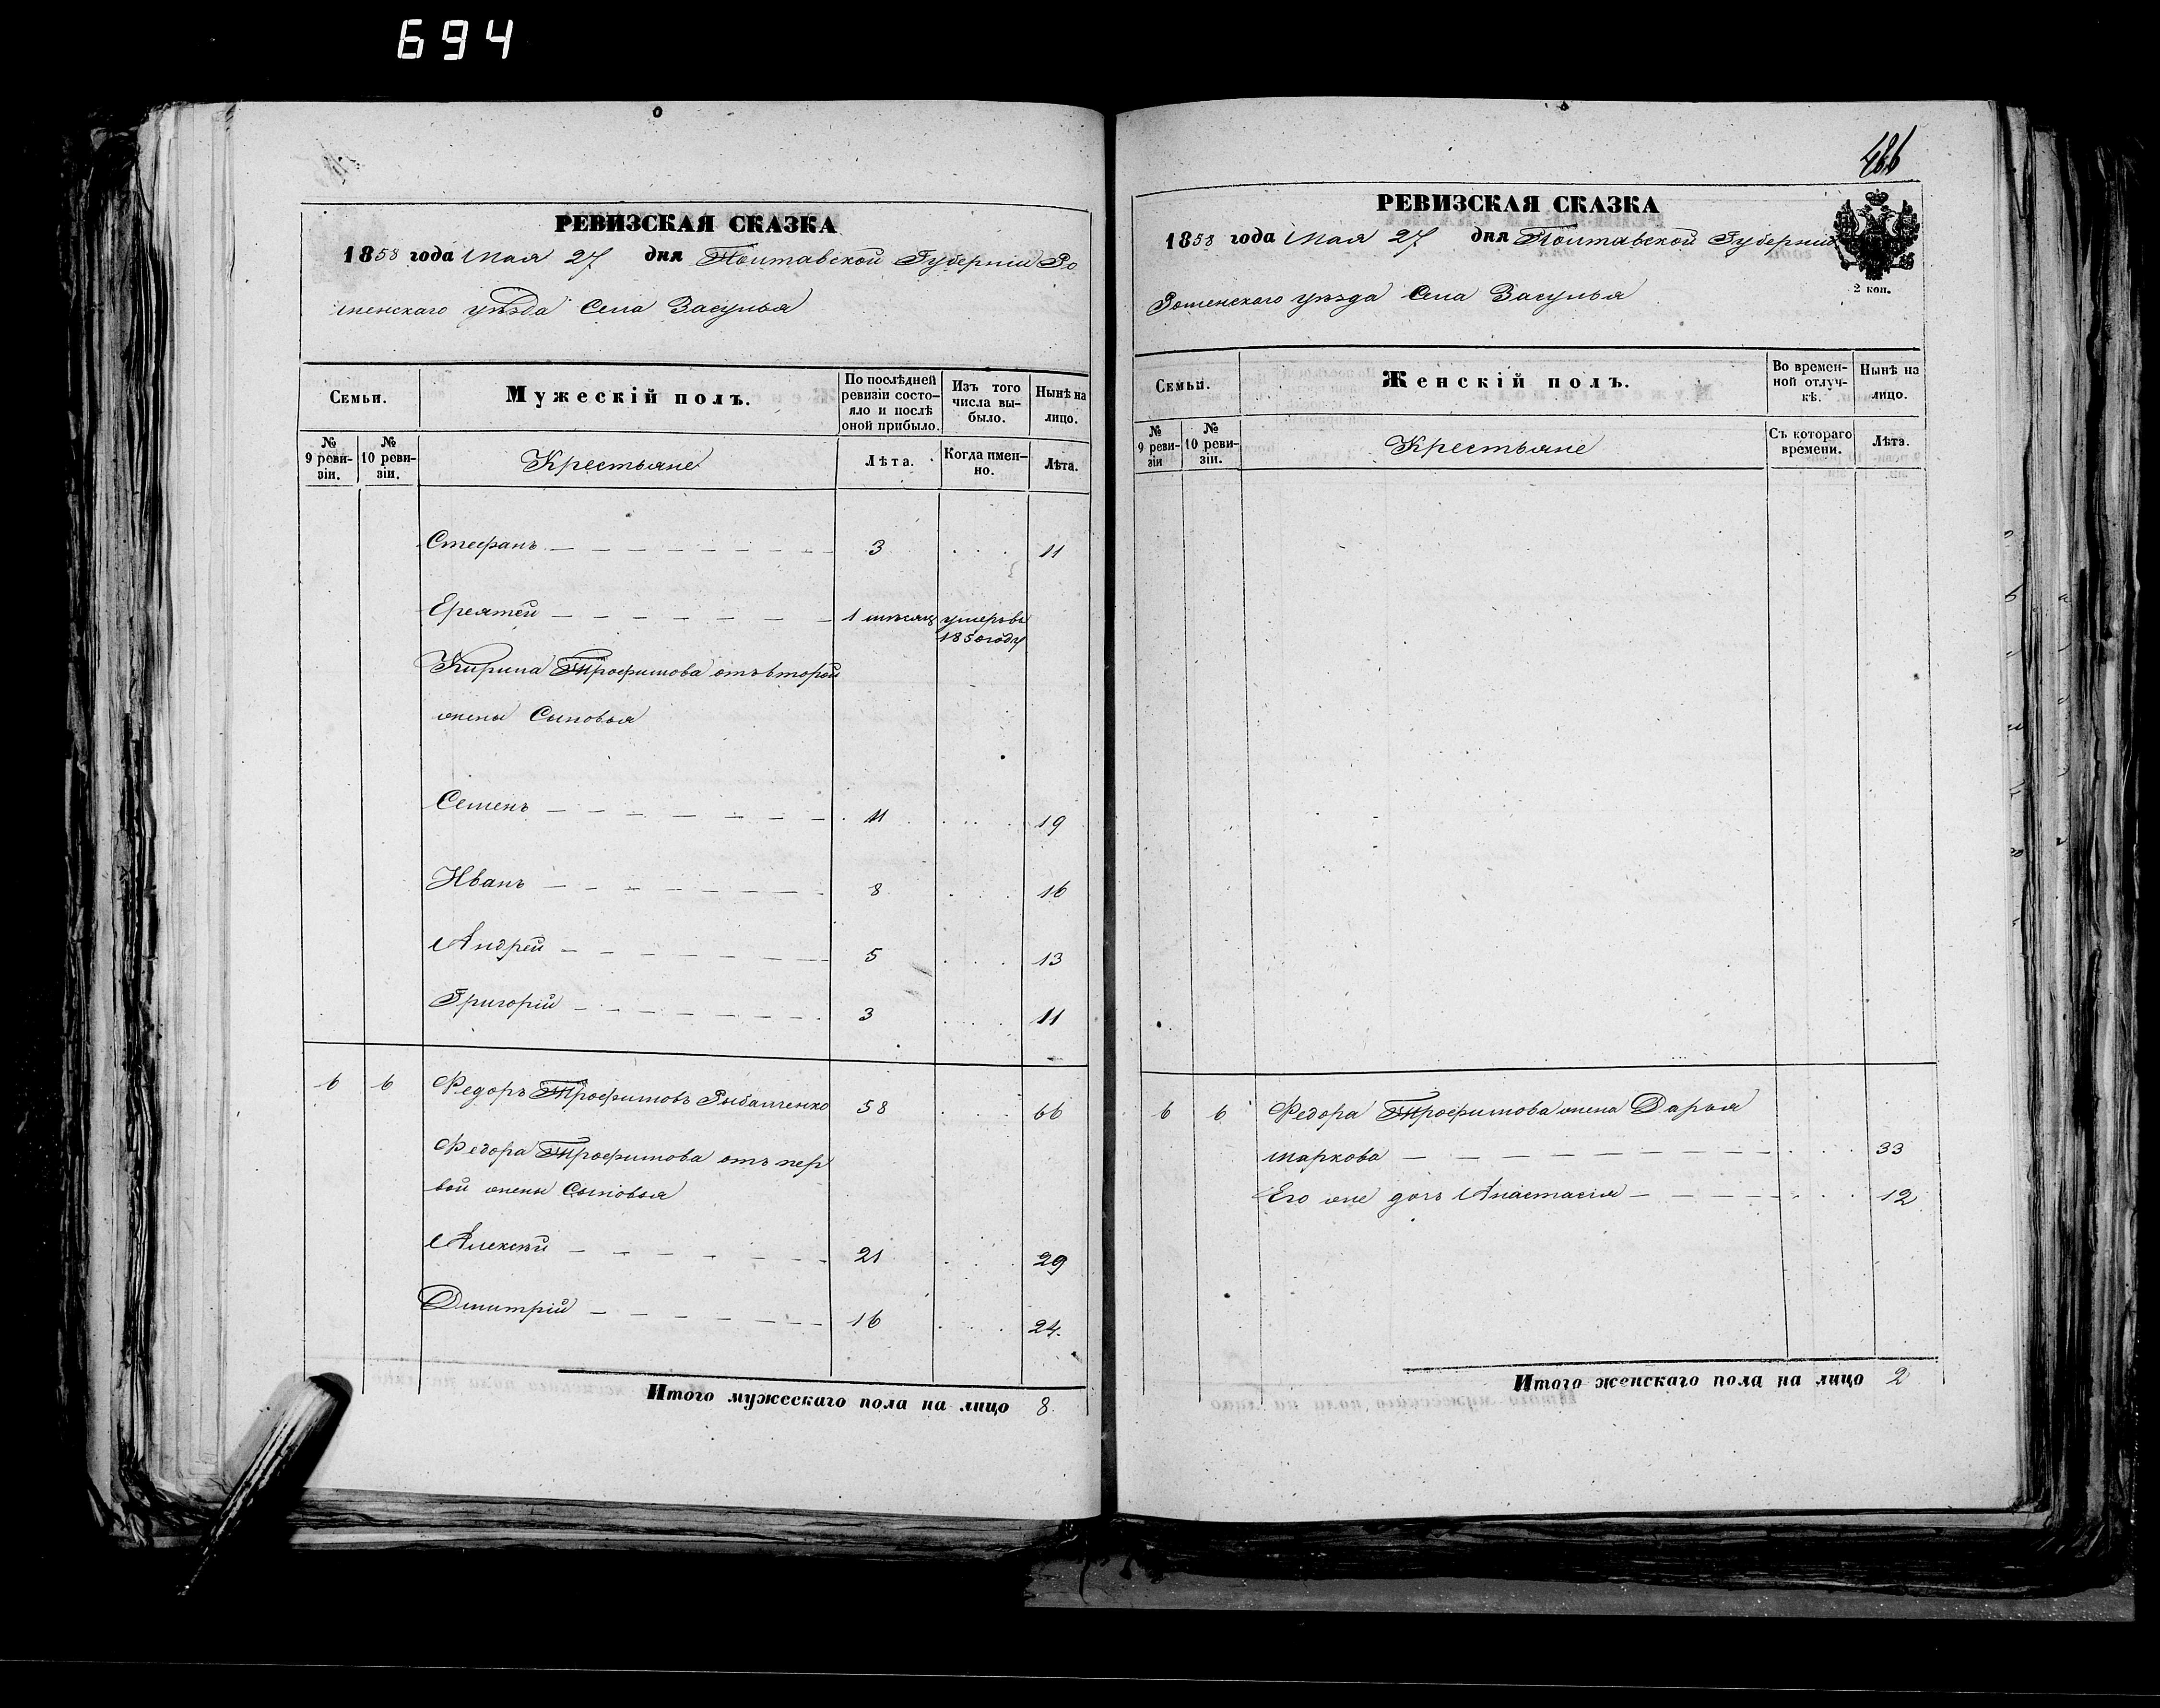 694
РЕВИЗСКАЯ СКАЗКА
1858 года Мая 27 дня Полтавской Губерніи Ро
менскаго уѣзда Села Засулья
Семьи.
Мужескій полъ.
По послѣдней ревизіи состояло и послѣ оной прибыло.
Изъ того числа выбыло.
Нынѣ на лицо.
№ 9 ревизіи.
№ 10 ревизіи.
Крестьяне
Лѣта.
Когда именно.
Лѣта.
Стефанъ 3 11
Еремѣй 1 мѣсяц умеръ въ
1850 году
Кирила Трофимова отъ второй
жены Сыновья
Семенъ 11 19
Иванъ 8 16
Андрей 5 13
Григорій 3 11
6 6 Федоръ Трофимовъ Рыбалченко 58 66
Федора Трофимова отъ пер
вой жены Сыновья
Алексѣй 21 29
Дмитрій 16 24.
Итого мужескаго пола на лицо 8.
466
РЕВИЗСКАЯ СКАЗКА
1858 года Мая 27 дня Полтавской Губерніи
2 коп.
Роменскаго уѣзда Села Засулья
Семьи.
Женскій полъ.
Во временной отлучкѣ.
Нынѣ на лицо.
№ 9 ревизіи
№ 10 ревизіи.
Крестьяне
Съ котораго времени.
Лѣта.
6 6 Федора Трофимова жена Дарья
Маркова 33
Его же дочь Анастасія 12
Итого женскаго пола на лицо 2